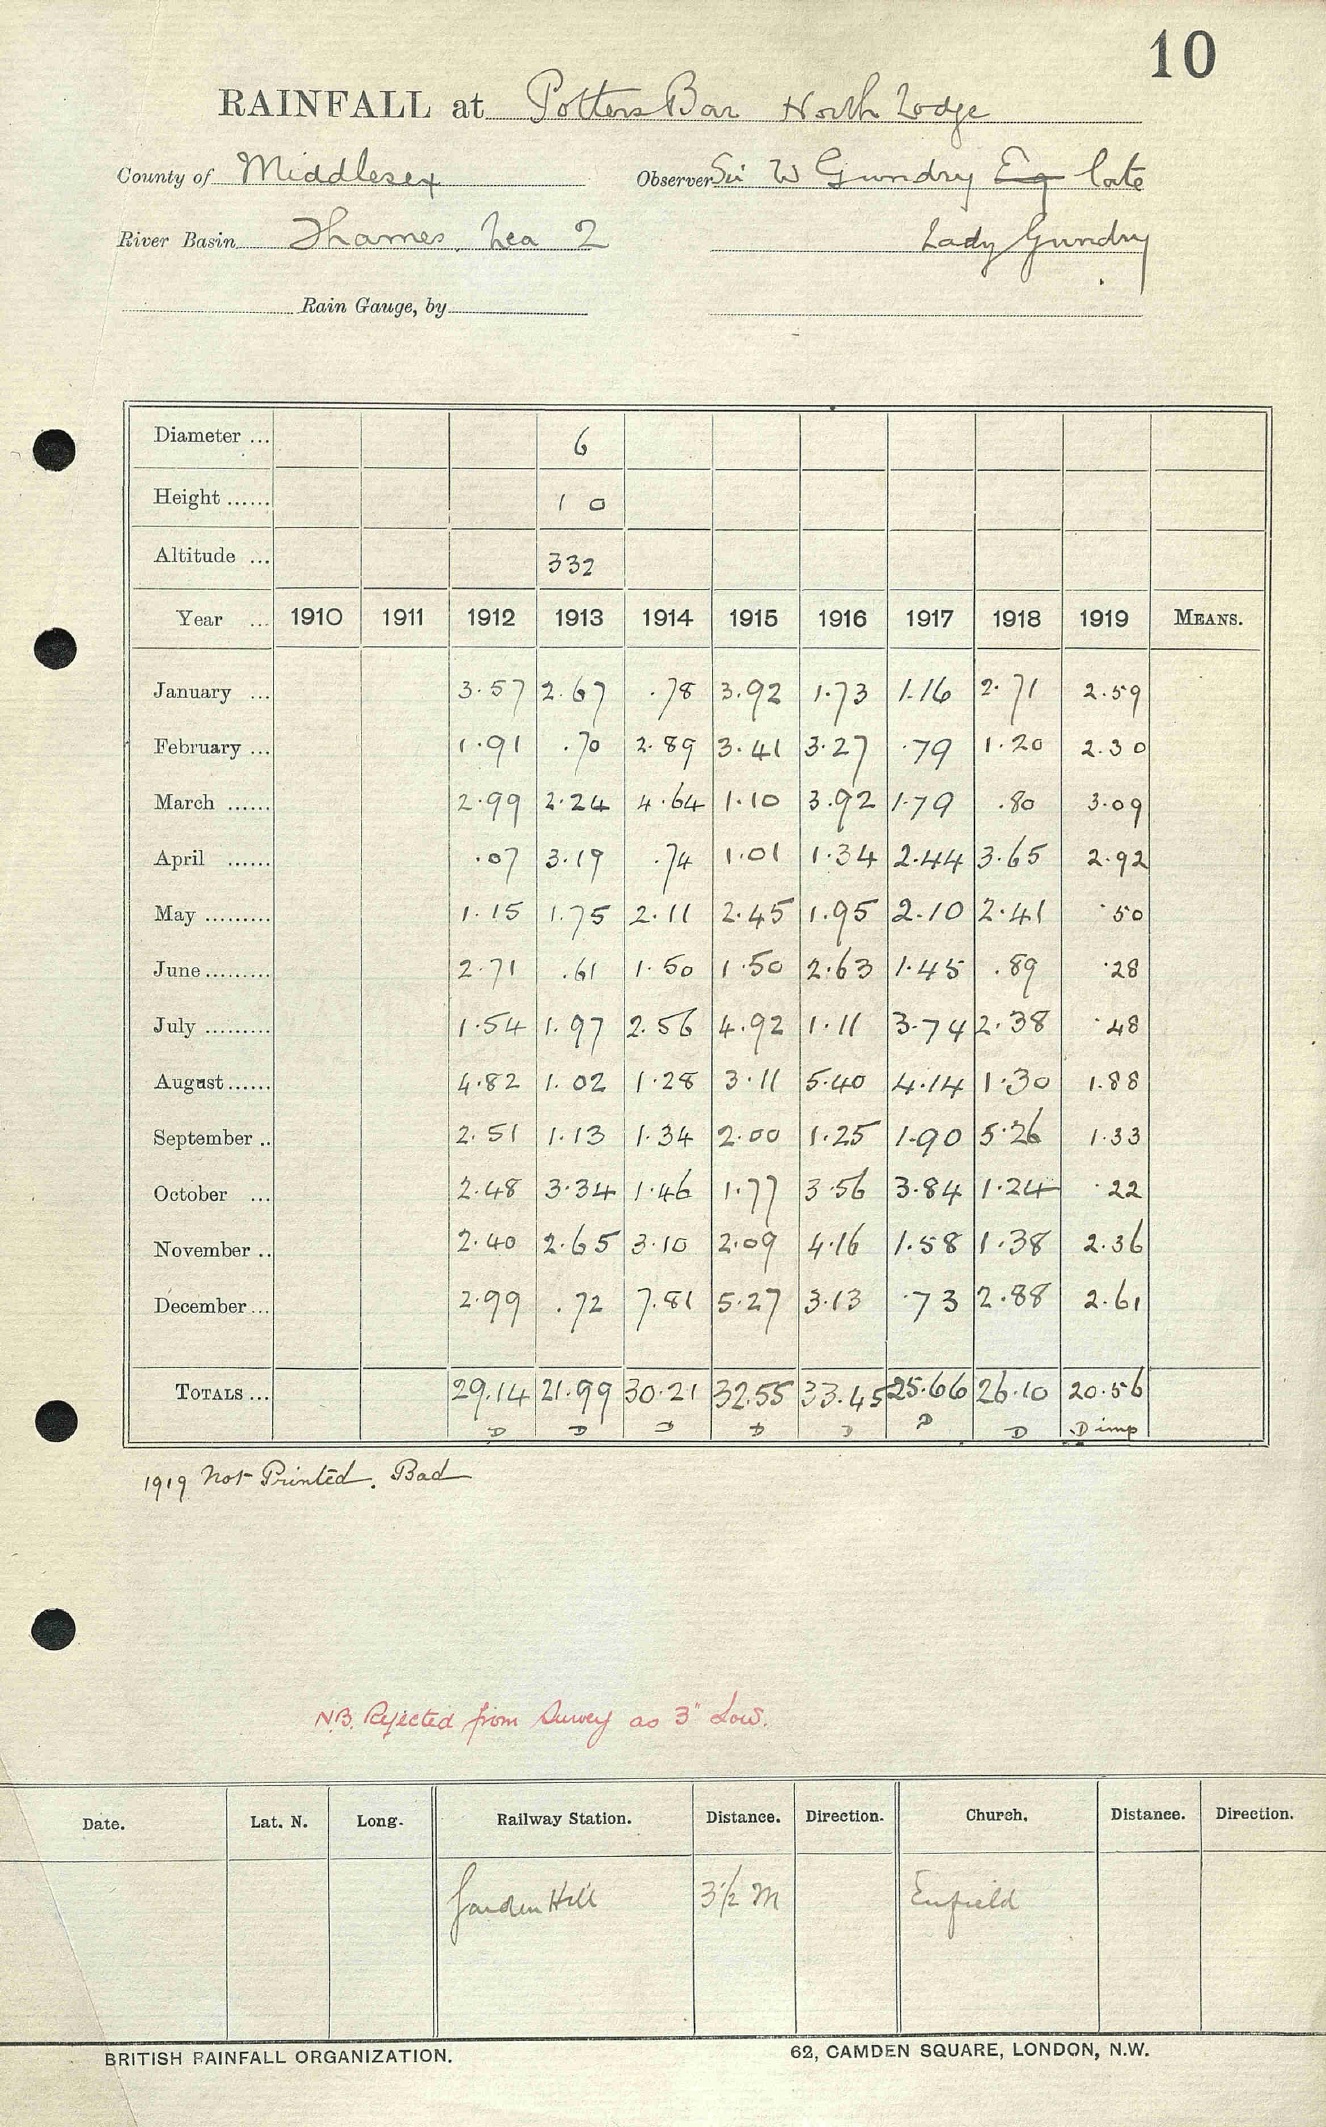 10
RAINFALL at Potters Bar North Lodge
County of Middlesex Observer Sir W Gundry Esq late
River Basin Thames, Lea 2 Lady Gundry
Rain Gauge, by
Diameter ... 6
Height ...... 1 0
Altitude ... 332
Year ... 1910 1911 1912 1913 1914 1915 1916 1917 1918 1919 MEANS.
January ... 3.57 2.67 .78 3.92 1.73 1.16 2.71 2.59
February ... 1.91 .70 2.89 3.41 3.27 .79 1.20 2.30
March ...... 2.99 2.24 4.64 1.10 3.92 1.79 .80 3.09
April ...... .07 3.19 .74 1.01 1.34 2.44 3.65 2.92
May ......... 1.15 1.75 2.11 2.45 1.95 2.10 2.41 .50
June ......... 2.71 .61 1.50 1.50 2.63 1.45 .89 .28
July ......... 1.54 1.97 2.56 4.92 1.11 3.74 2.38 .48
August ...... 4.82 1.02 1.28 3.11 5.40 4.14 1.30 1.88
September .. 2.51 1.13 1.34 2.00 1.25 1.90 5.26 1.33
October ... 2.48 3.34 1.46 1.77 3.56 3.84 1.24 .22
November .. 2.40 2.65 3.10 2.09 4.16 1.58 1.38 2.36
December ... 2.99 .72 7.81 5.27 3.13 .73 2.88 2.61
TOTALS ... 29.14 21.99 30.21 32.55 33.45 25.66 26.10 20.56
D D D D D D D D imp
1919 Not Printed. Bad
N.B. Rejected from Survey as 3" Low.
Date. Lat. N. Long. Railway Station. Distance. Direction. Church. Distance. Direction.
Hill 3½ M Enfield
BRITISH RAINFALL ORGANIZATION. 62, CAMDEN SQUARE, LONDON, N.W.